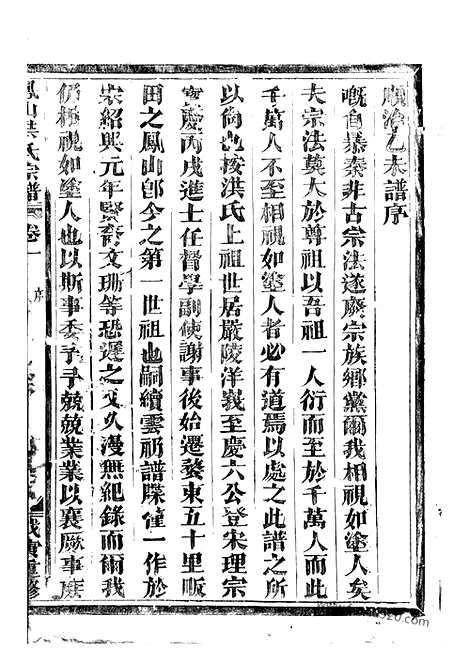 順治乙未譜序
嘅自暴秦非古宗法遂廢宗族鄉黨爾我相視如塗人矣
夫宗法莫大於尊祖以吾祖一人衍而至於千萬人而此
千萬人不至相視如塗人者必有道焉以處之此譜之所
以尚也按洪氏上祖世居嚴陵洋義至慶六公登宋理宗
寶慶丙戌進士任督學副使謝事後始遷婺東五十里畈
田之鳳山卽今之第一世祖也嗣續雲礽譜牒僅一作於
宋紹興元年賢裔文珊等恐遲之又久漫無紀錄而爾我
仍極視如塗人也以斯事委予予兢兢業業以襄厥事庶
鳳山洪氏宗譜 卷一 序 重修